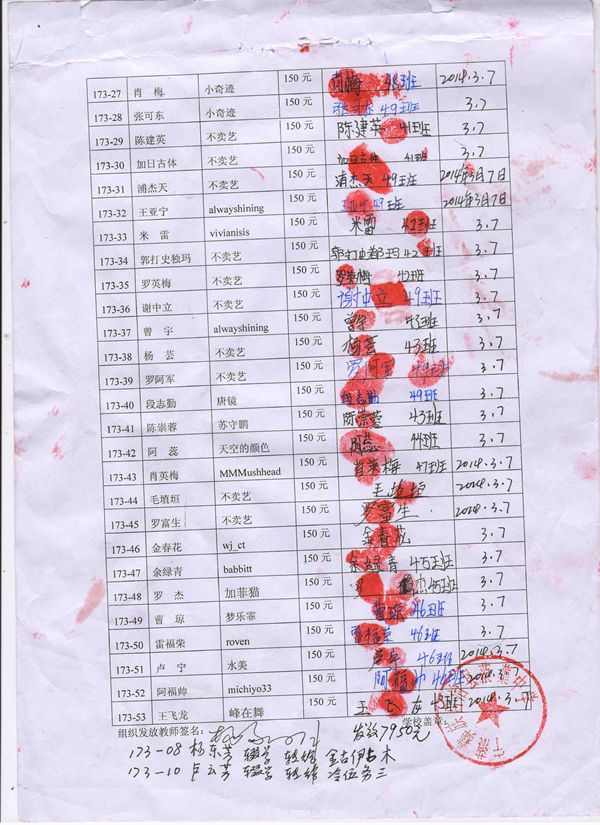 173-27 肖 梅 小奇迹 150 元 肖梅 48班 2014.3.7
173-28 张可东 小奇迹 150 元 张可东 49班 3.7
173-29 陈建英 不卖艺 150 元 陈建英 41班 3.7
173-30 加日古体 不卖艺 150 元 加日古体 41班 3.7
173-31 浦杰天 不卖艺 150 元 浦杰天 49班 2014年3月7日
173-32 王亚宁 alwayshining 150 元 王亚宁 49班 2014年3月7日
173-33 米 雷 vivianisis 150 元 米雷 42班 3.7
173-34 郭打史独玛 不卖艺 150 元 42班 3.7
173-35 罗英梅 不卖艺 150 元 罗英梅 42班 3.7
173-36 谢中立 不卖艺 150 元 谢中立 49班 3.7
173-37 曾 宇 alwayshining 150 元 曾宇 43班 3.7
173-38 杨 芸 不卖艺 150 元 杨芸 43班 3.7
173-39 罗阿军 不卖艺 150 元 罗阿军 49班 3.7
173-40 段志勤 唐镜 150 元 段志勤 49班 3.7
173-41 陈崇蓉 苏守鹏 150 元 陈崇蓉 43班 3.7
173-42 阿 蕊 天空的颜色 150 元 阿蕊 44班 3.7
173-43 肖英梅 MMMushhead 150 元 肖英梅 47班 2014.3.7
173-44 毛填垣 不卖艺 150 元 2014.3.7
173-45 罗富生 不卖艺 150 元 罗富生 2014.3.7
173-46 金春花 wj_ct 150 元 金春花 3.7
173-47 余绿青 babbitt 150 元 余绿青 45班 3.7
173-48 罗 杰 加菲猫 150 元 罗杰 45班 3.7
173-49 曹 琼 梦乐霏 150 元 曹琼 46班 3.7
173-50 雷福荣 roven 150 元 雷福荣 46班 3.7
173-51 卢 宁 水美 150 元 卢宁 46班 2014.3.7
173-52 阿福帅 michiyo33 150 元 阿福帅 46班 2014.3.7
173-53 王飞龙 峰在舞 150 元 王飞龙 45班 2014.3.7
组织发放教师签名： 发放7950元 学校盖章：
173-08 杨东芳 辍学 转给 金古伊古木
173-10 卢云芳 辍学 转给 冷伍务三